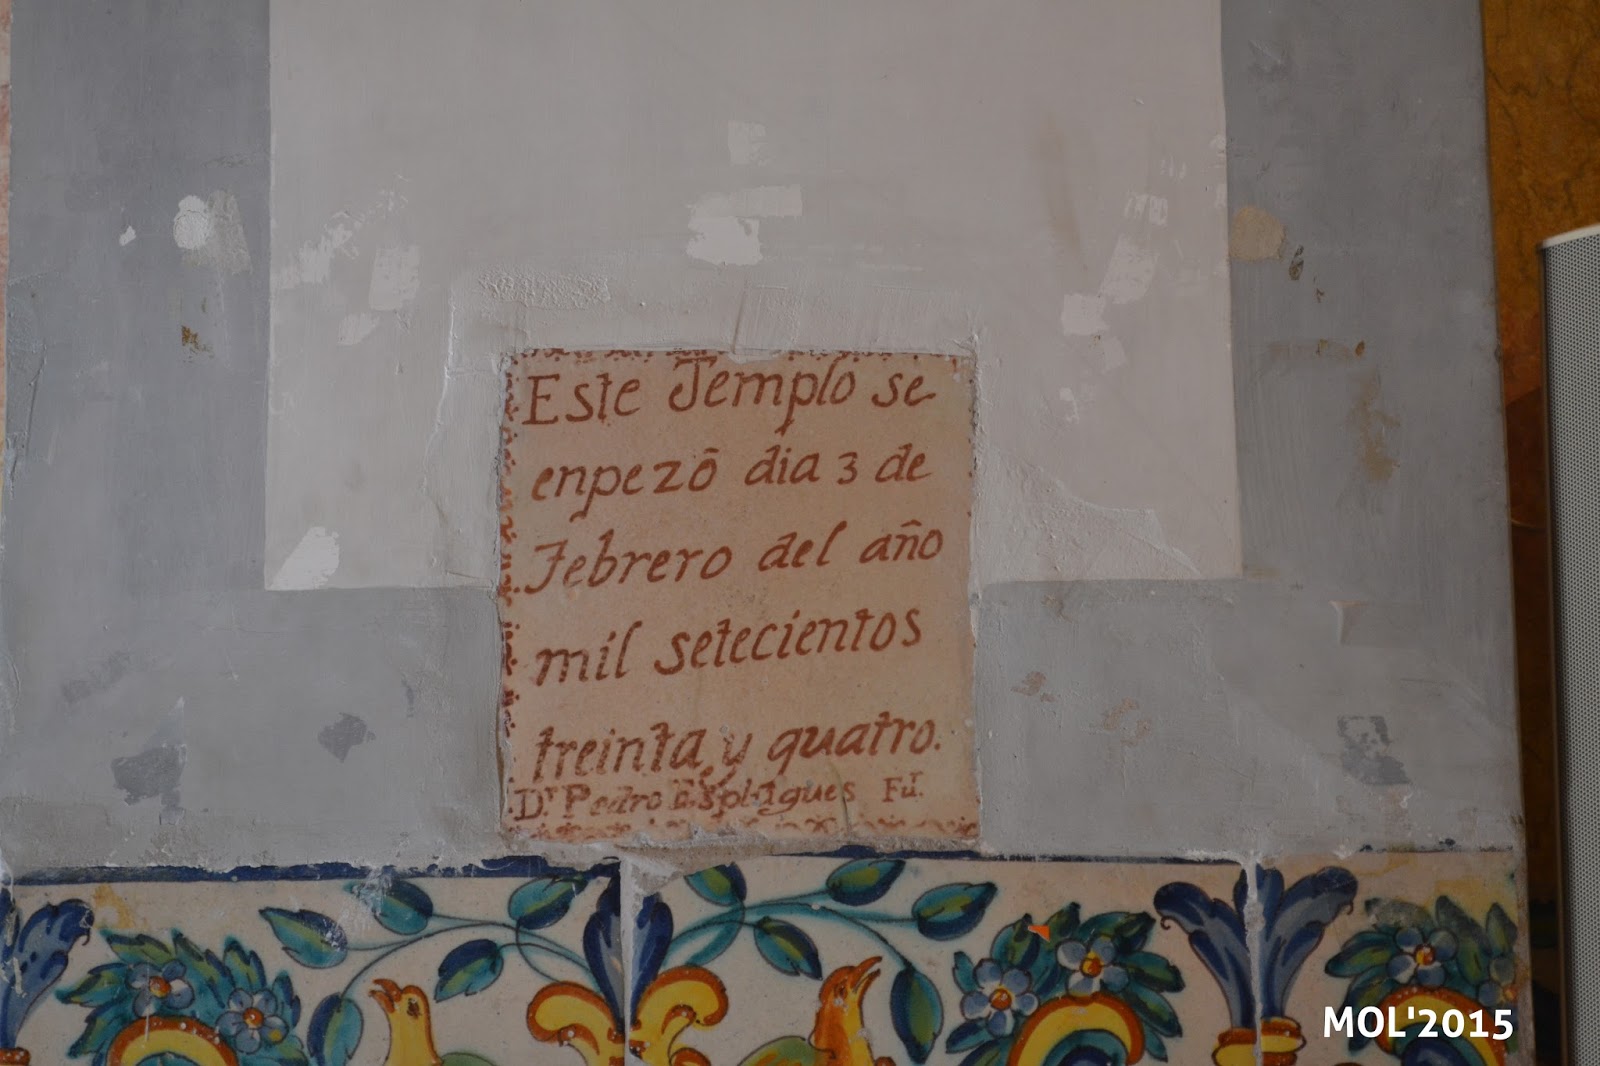 Este Templo se
enpezō dia 3 de
Febrero del año
mil setecientos
treinta y quatro.
Dr. Pedro Esplugues Fu.r
MOL'2015